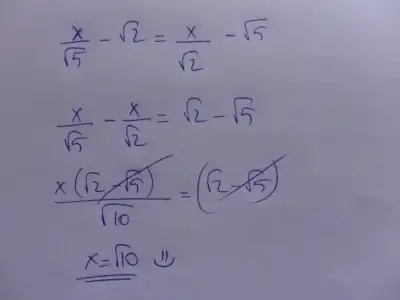 x/√5 − √2 = x/√2 − √5
x/√5 − x/√2 = √2 − √5
x(√2 − √5)/√10 = (√2 − √5)
x = √10 =)